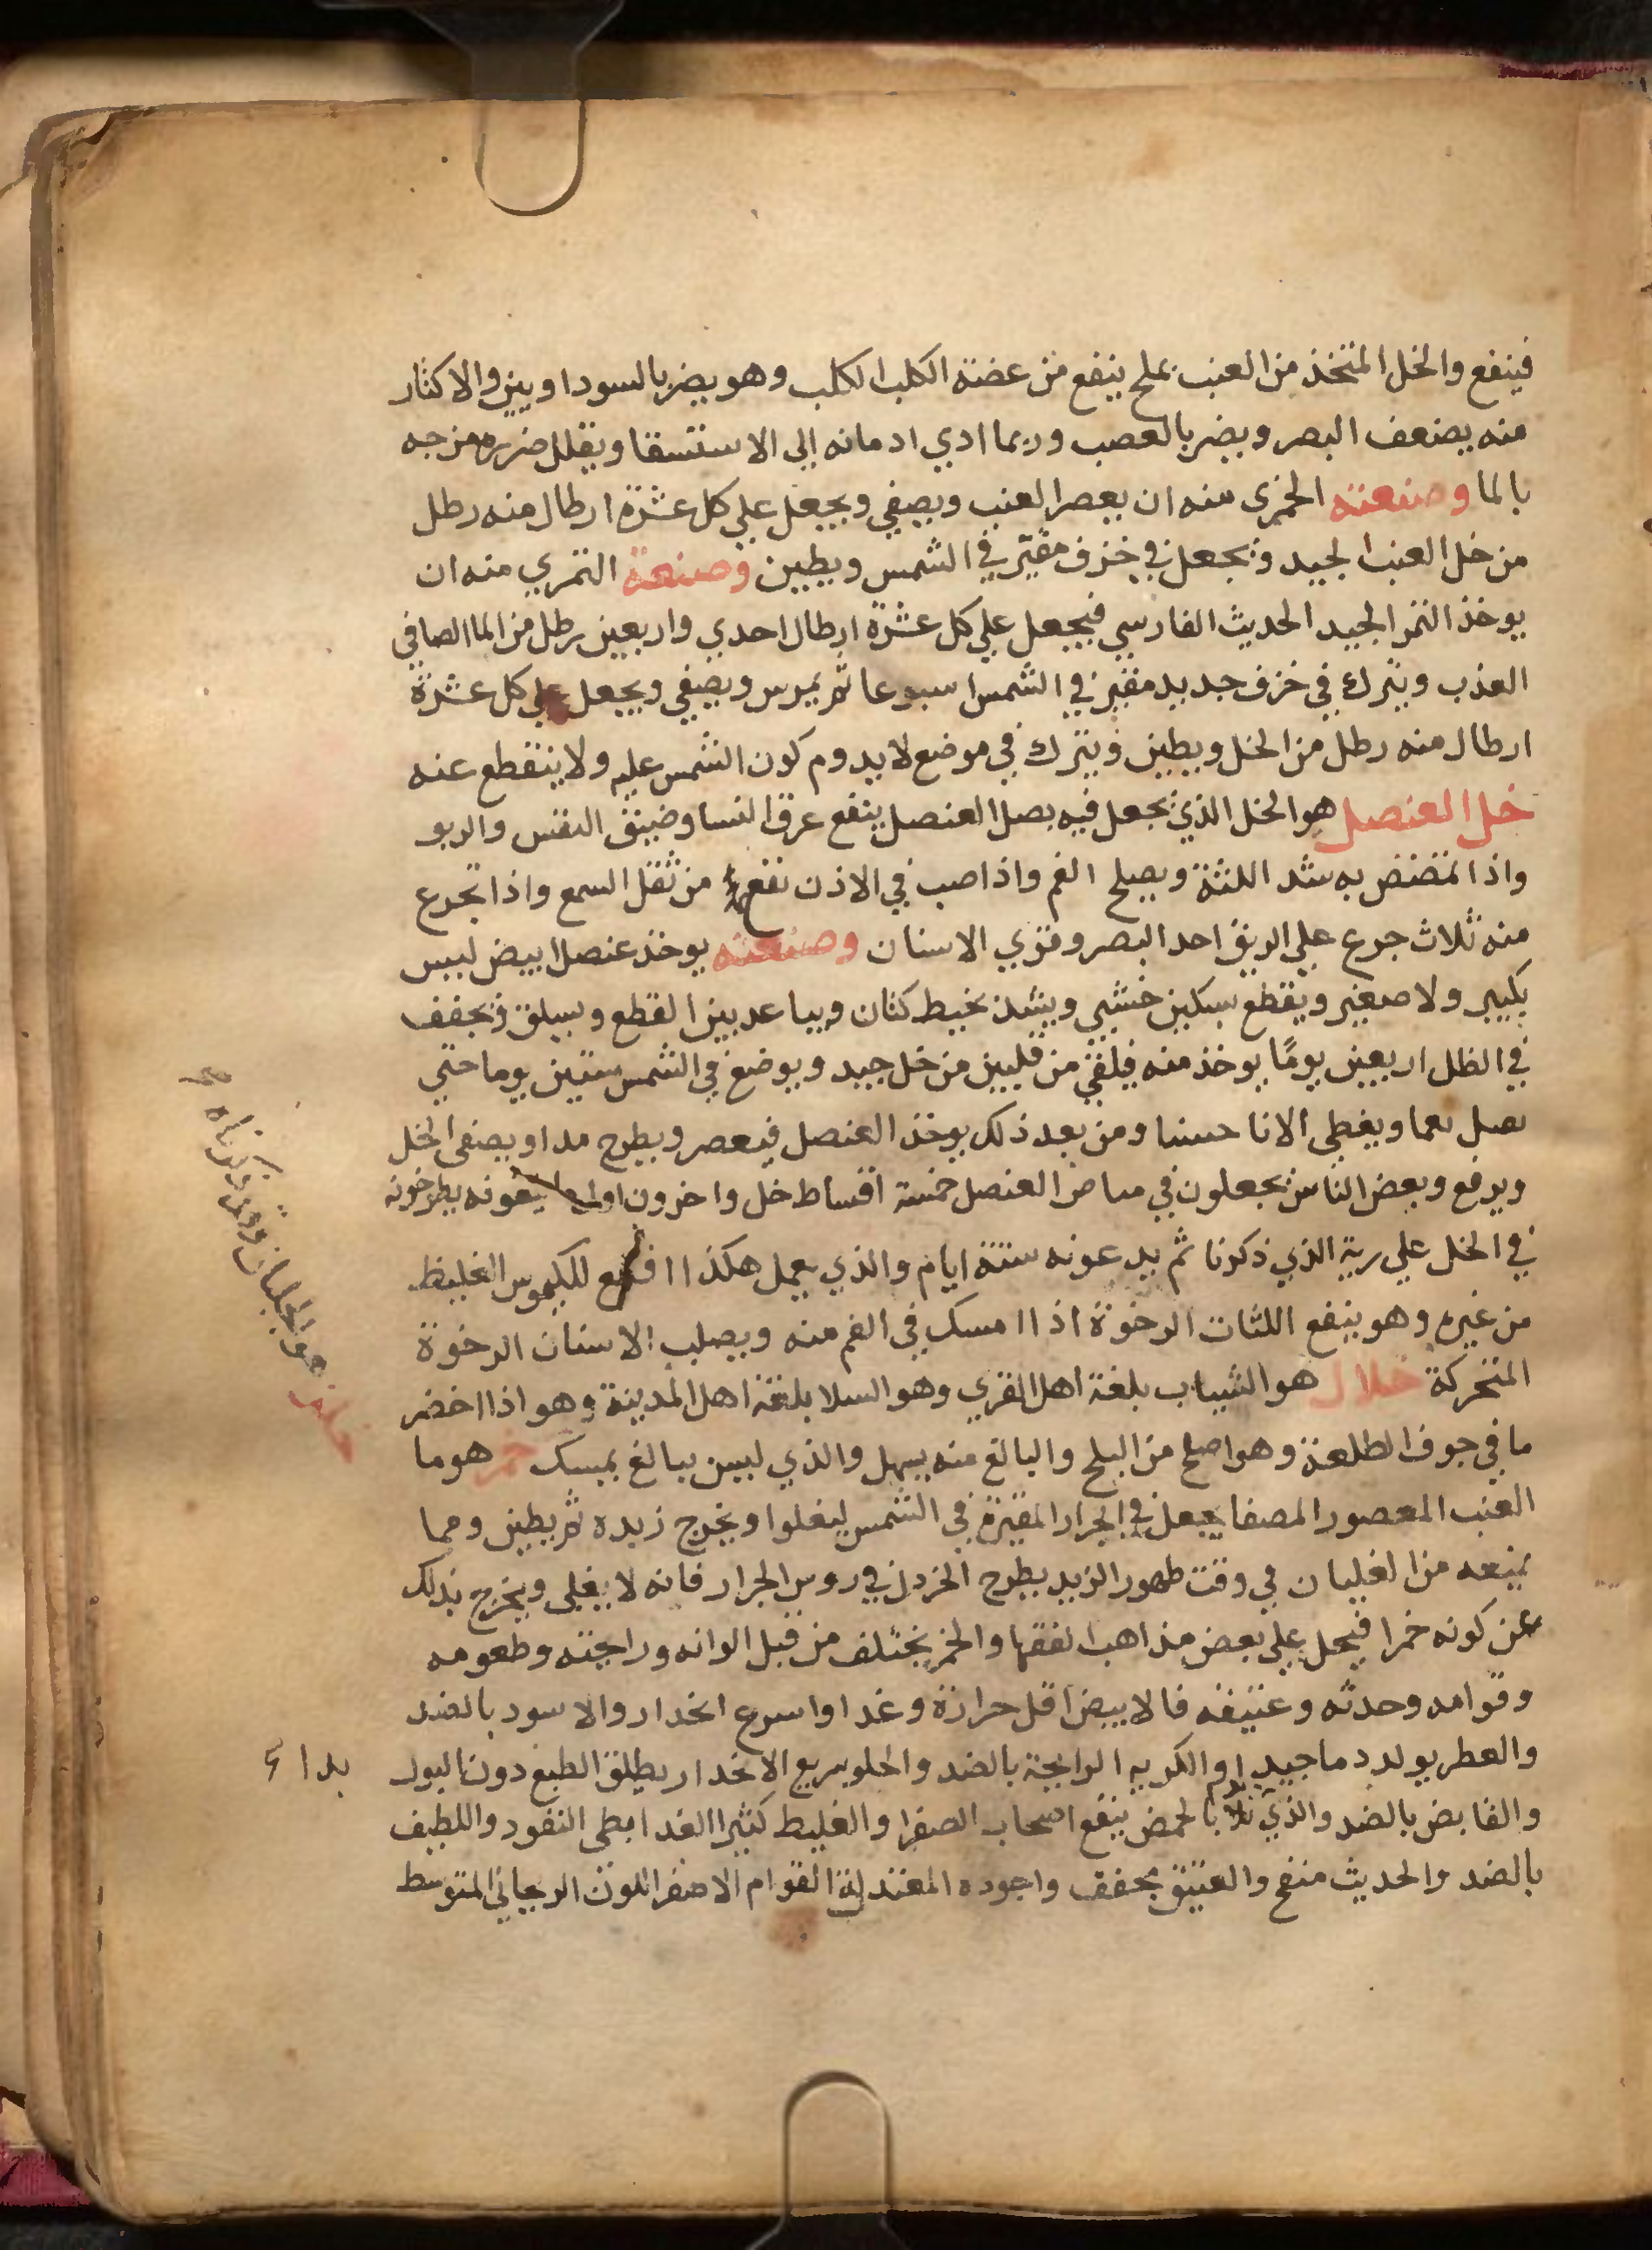 فينفع والخل المتخذ من العنب بملح ينفع من عضة الكلب الكلب وهو يضر بالسوداويين والاكثار
منه يضعف البصر ويضر بالعصب وربما ادي ادمانه الي الاستسقا ويقلل ضرره مزجه
بالما وصنعته الخمري منه ان يعصر العنب ويصفي ويجعل علي كل عشرة ارطال منه رطل
من خل العنب الجيد ويجعل في خزف مقير في الشمس ويطين وصنعة التمري منه ان
يوخذ التمر الجيد الحديث الفارسي فيجعل علي كل عشرة ارطال احدي واربعين رطل من الما الصافي
العذب ويترك في خزف جديد مقير في الشمس اسبوعا ثم يمرس ويصفي ويجعل علي كل عشرة
ارطال منه رطل من الخل ويطين ويترك في موضع لا يدوم كون الشمس عليه ولا ينقطع عنه
خل العنصل هو الخل الذي يجعل فيه بصل العنصل ينفع عرق النسا وضيق النفس والربو
واذا تمضمض به شد اللثة ويصلح الفم واذا صب في الاذن نفع من ثقل السمع واذا تجرع
منه ثلاث جرع علي الريق احد البصر وقوي الاسنان وصنعته يوخذ عنصل ابيض ليس
بكبير ولا صغير ويقطع بسكين خشبي ويشد بخيط كتان ويباعد بين القطع ويسلق ويجفف
في الظل اربعين يومًا يوخذ منه فيلقي من قلبين من خل جيد ويوضع في الشمس ستين يوما حتي
يصل نعما ويغطي الانا حسنا ومن بعد ذلك يوخذ العنصل فيعصر ويطرح مداو يصفي الخل
ويرفع وبعض الناس يجعلون في منا من العنصل خمسة اقساط خل واخرون يطرخونه
في الخل علي رية الذي ذكرنا ثم يدعونه ستة ايام والذي يعمل هكذا للكيموس الغليظ
من غيره وهو ينفع اللثات الرخوة اذا امسك في الفم منه ويصلب الاسنان الرخوة
المتحركة خلال هو الشياب بلغة اهل القري وهو السلا بلغة اهل المدينة وهو اذا اخضر
ما في جوف الطلعة وهو اصلح من البلح والبالغ منه يسهل والذي ليس ببالغ يمسك خمر هو ما
العنب المعصور المصفا يجعل في الجرار المقيرة في الشمس ليغلوا ويخرج زبده ثم يطين ومما
يمنعه من الغليان في وقت ظهور الزبد يطرح الخردل في روس الجرار فانه لا يغلي ويخرج بذلك
عن كونه خمرا فيحل علي بعض مذاهب الفقها والخمر يختلف من قبل الوانه ورايحته وطعومه
وقوامه وحدثه وعتيقه فالابيض اقل حرارة وغدا واسرع انحدار والاسود بالضد
والعطر يولد دما جيدا والكريه الرايحة بالضد والحلو سريع الانحدار يطلق الطبع دون البول
والقابض بالضد والذي بالحمض ينفع اصحاب الصفرا والغليط كثير الغدا بطي النفود واللطيف
بالضد والحديث منفخ والعتيق مجفف واجوده المعتدلة القوام الاصفر اللون الريحاني المتوسط
بدا